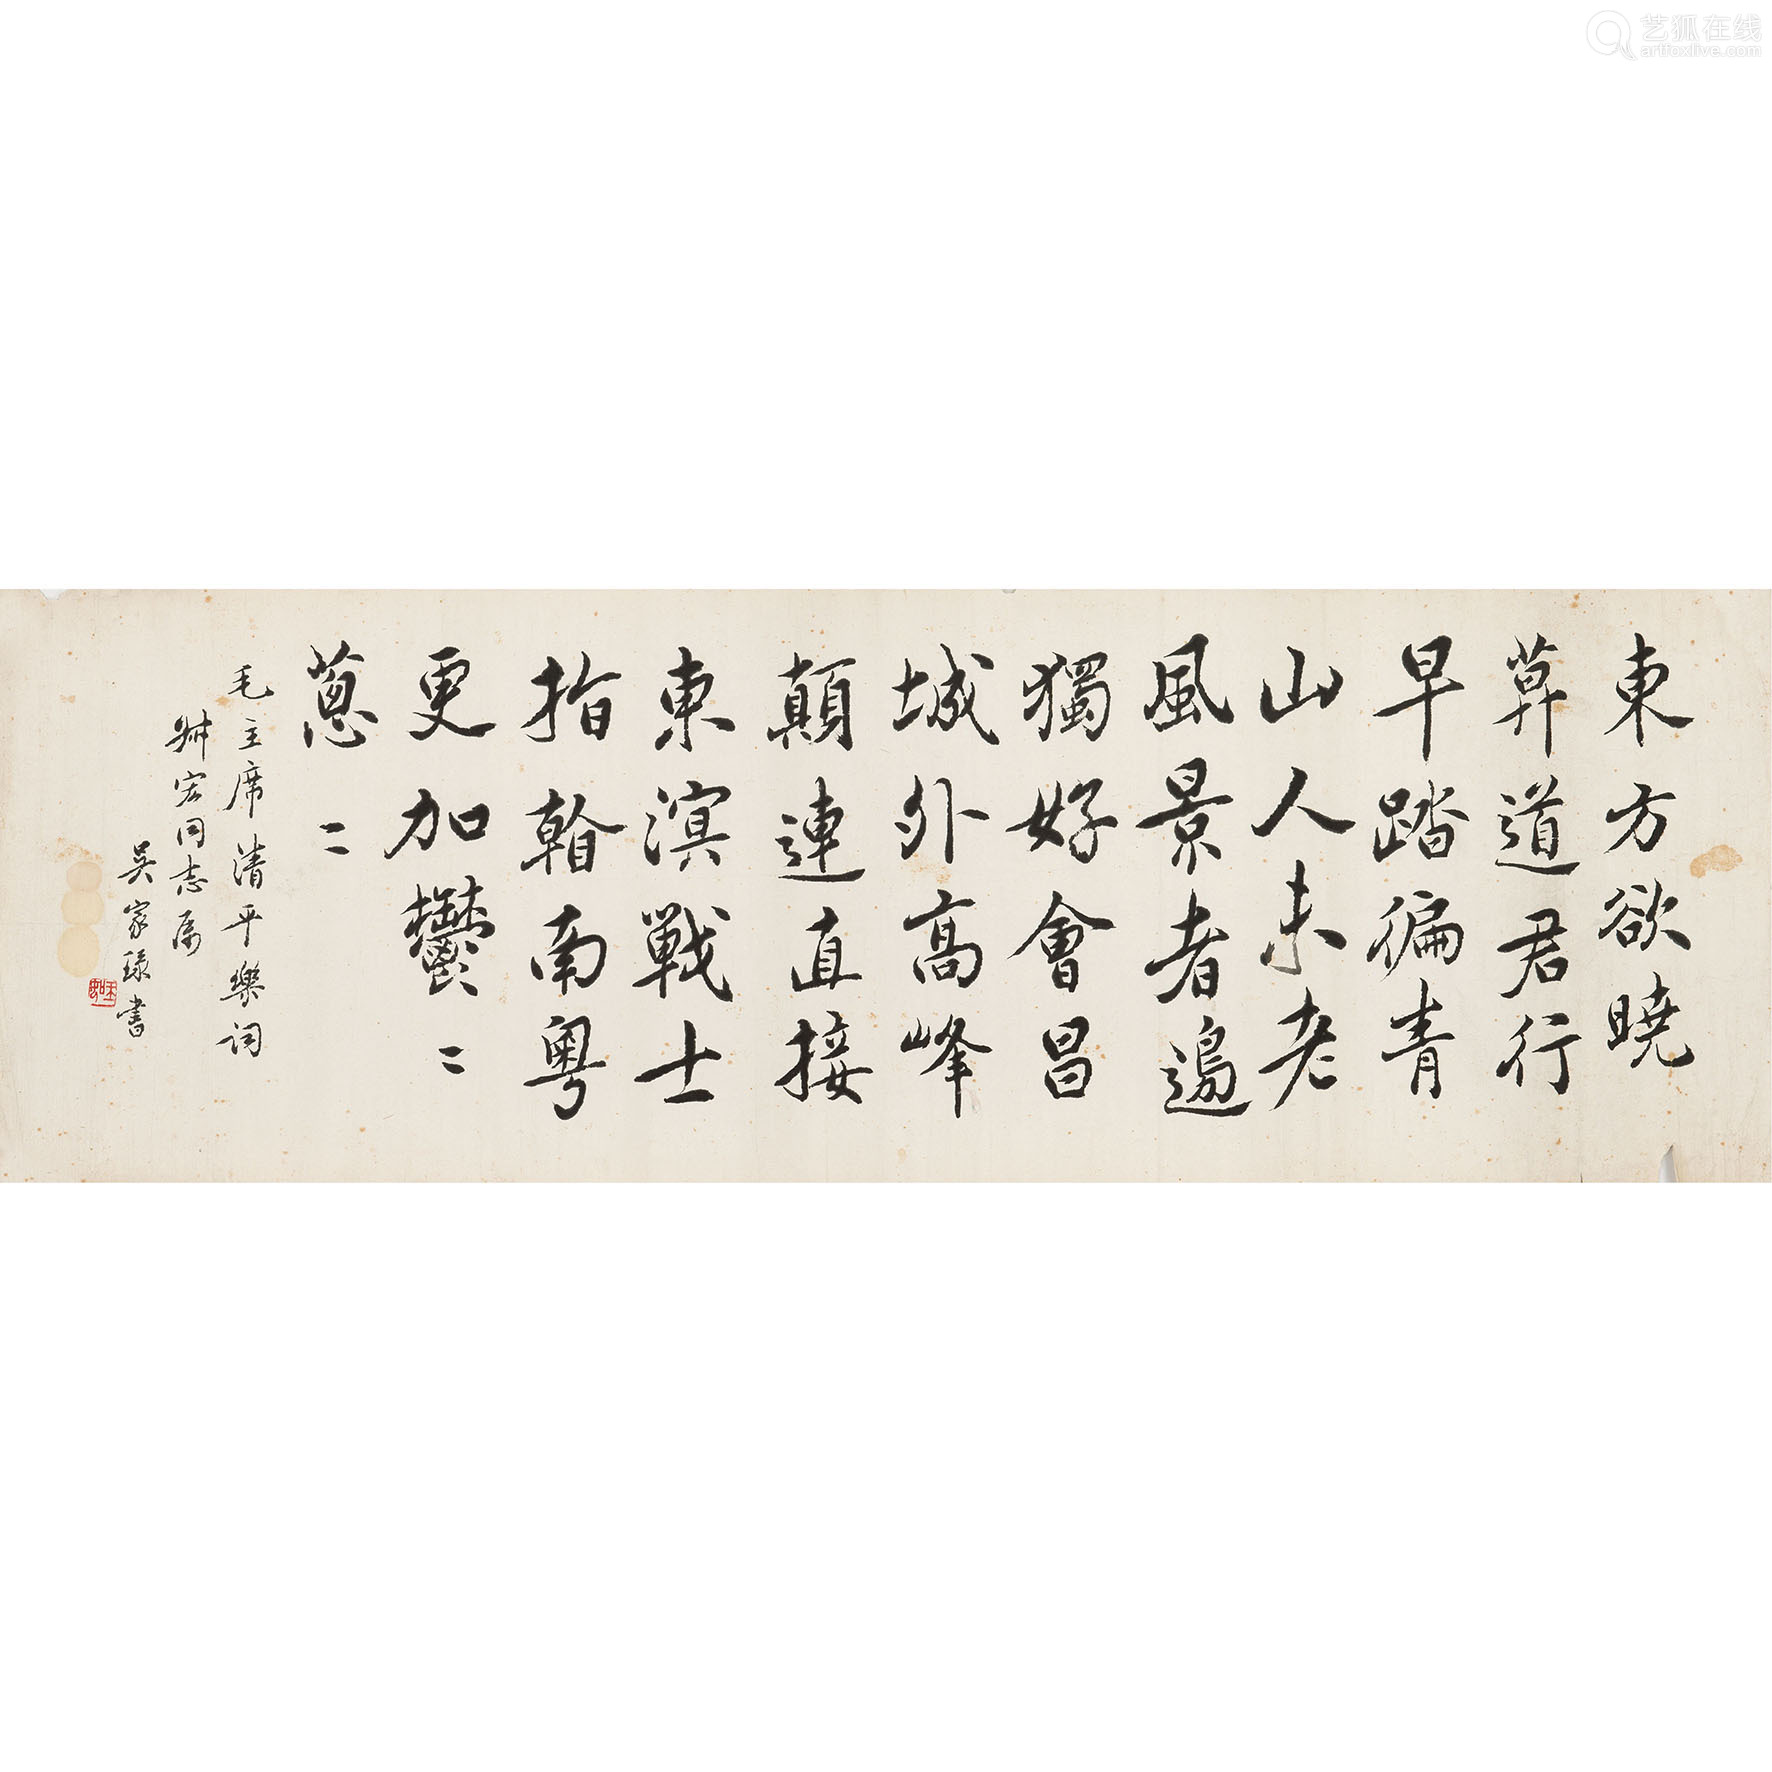 東方欲曉
莫道君行
早踏徧青
山人未老
風景者邊
獨好會昌
城外高峰
顛連直接
東溟戰士
指看南粵
更加鬱〻
蔥〻
毛主席清平樂詞
宏同志属
吴家琭書
艺狐在线
artfoxlive.com